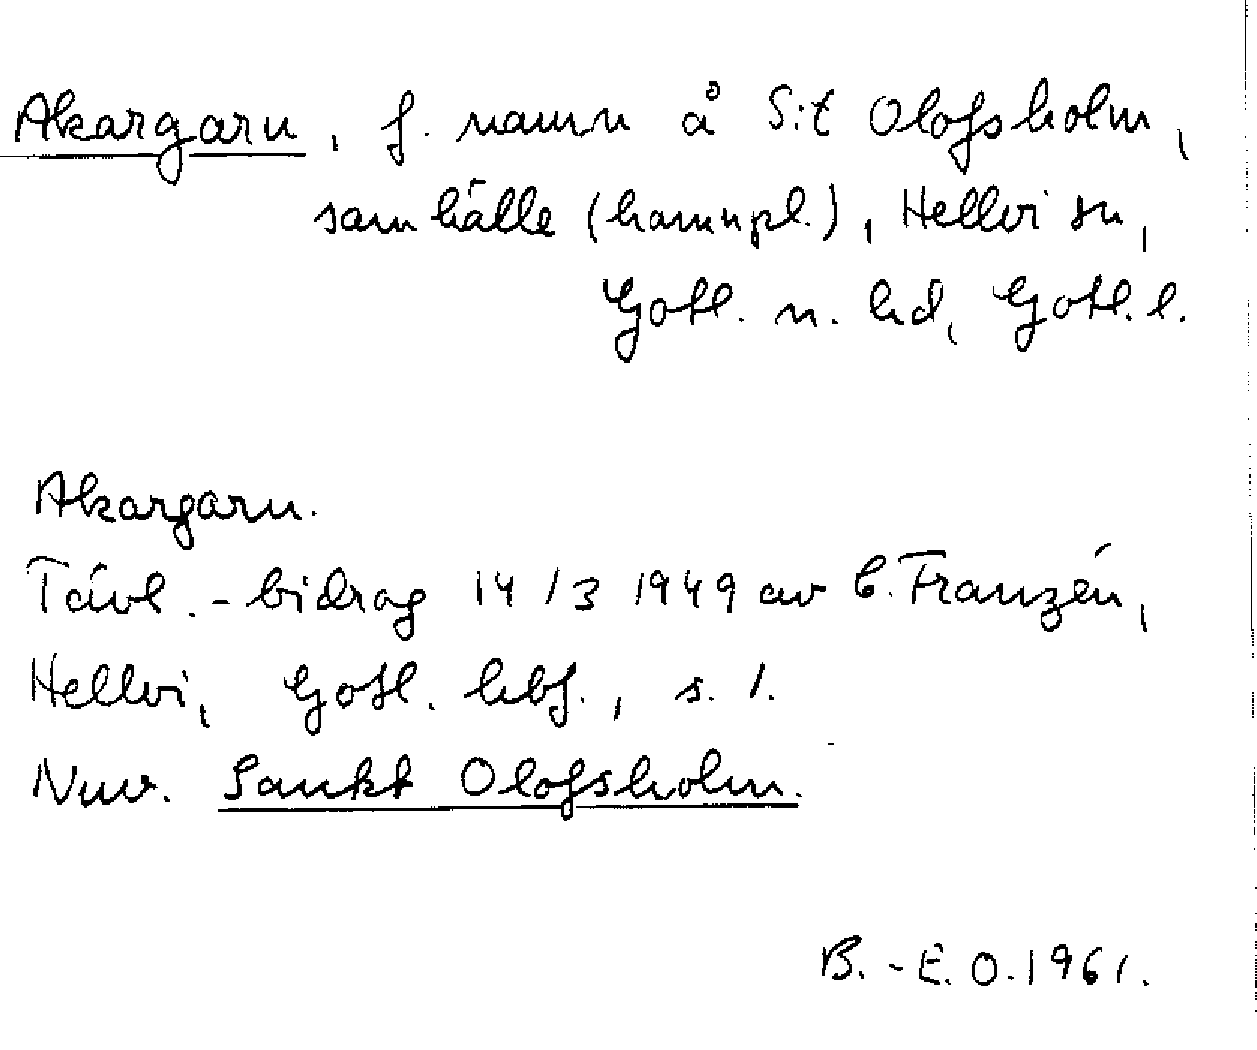 Akargarn, f. namn å S:t Olofsholm,
samhälle (hamnpl.), Hellvi sn,
Gotl. n. hd, Gotl. l.
Akargarn.
Tävl.-bidrag 14/3 1949 av C. Franzén,
Hellvi, Gotl. hbf., s. 1.
Nuv. Sankt Olofsholm.
B.-E. O. 1961.